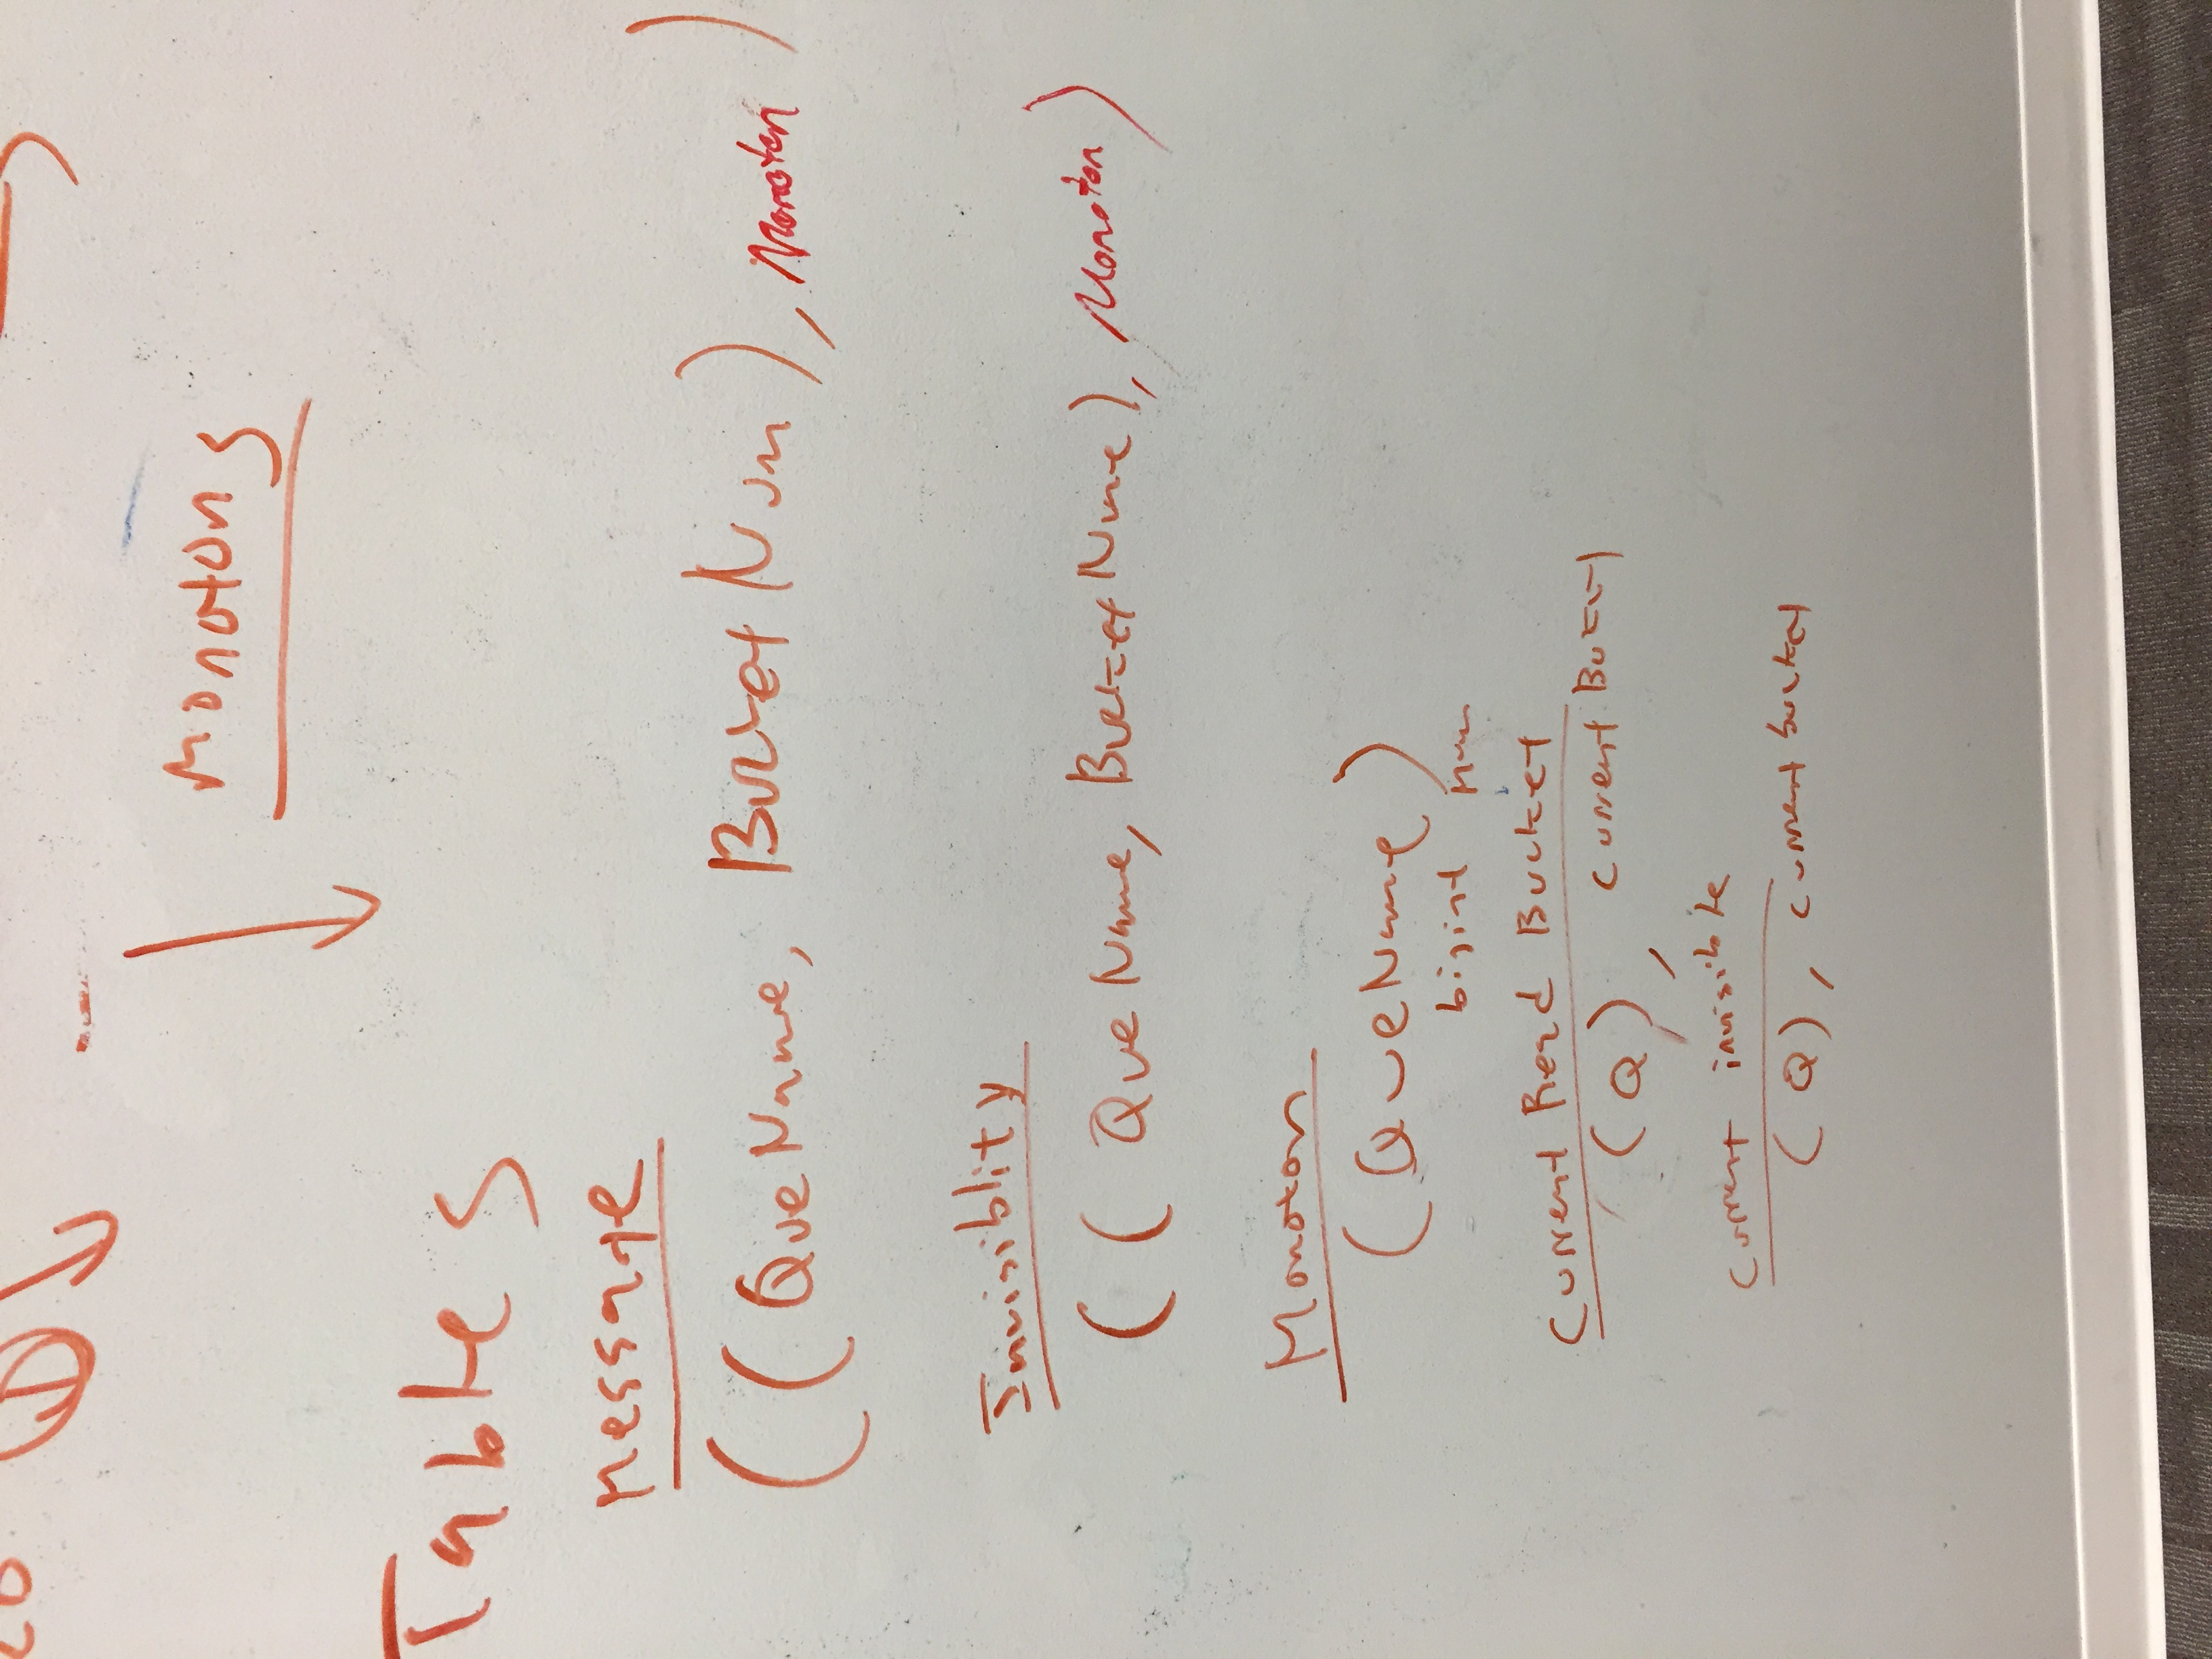 Monotons
Tables
Message
((QueName, BucketNum), Monoton)
Invisiblity
((QueName, BucketNume), Monoton)
Monoton
(QueName)
bigint
Current Read Bucket
(Q), Current Bucket
Current invisible
(Q), current bucket